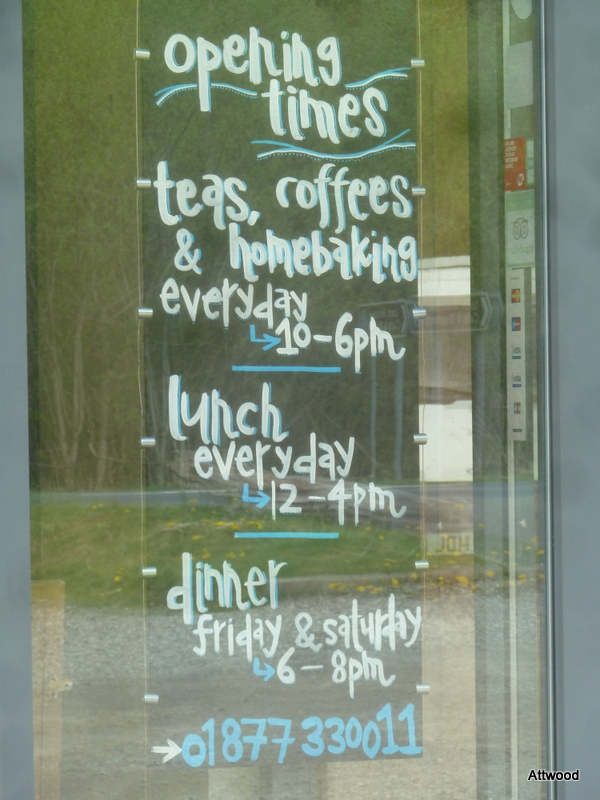 opening
times
teas, coffees
& homebaking
everyday
10-6pm
lunch
everyday
12-4pm
dinner
friday & saturday
6-8pm
01877 330011
VISA
VISA
Attwood